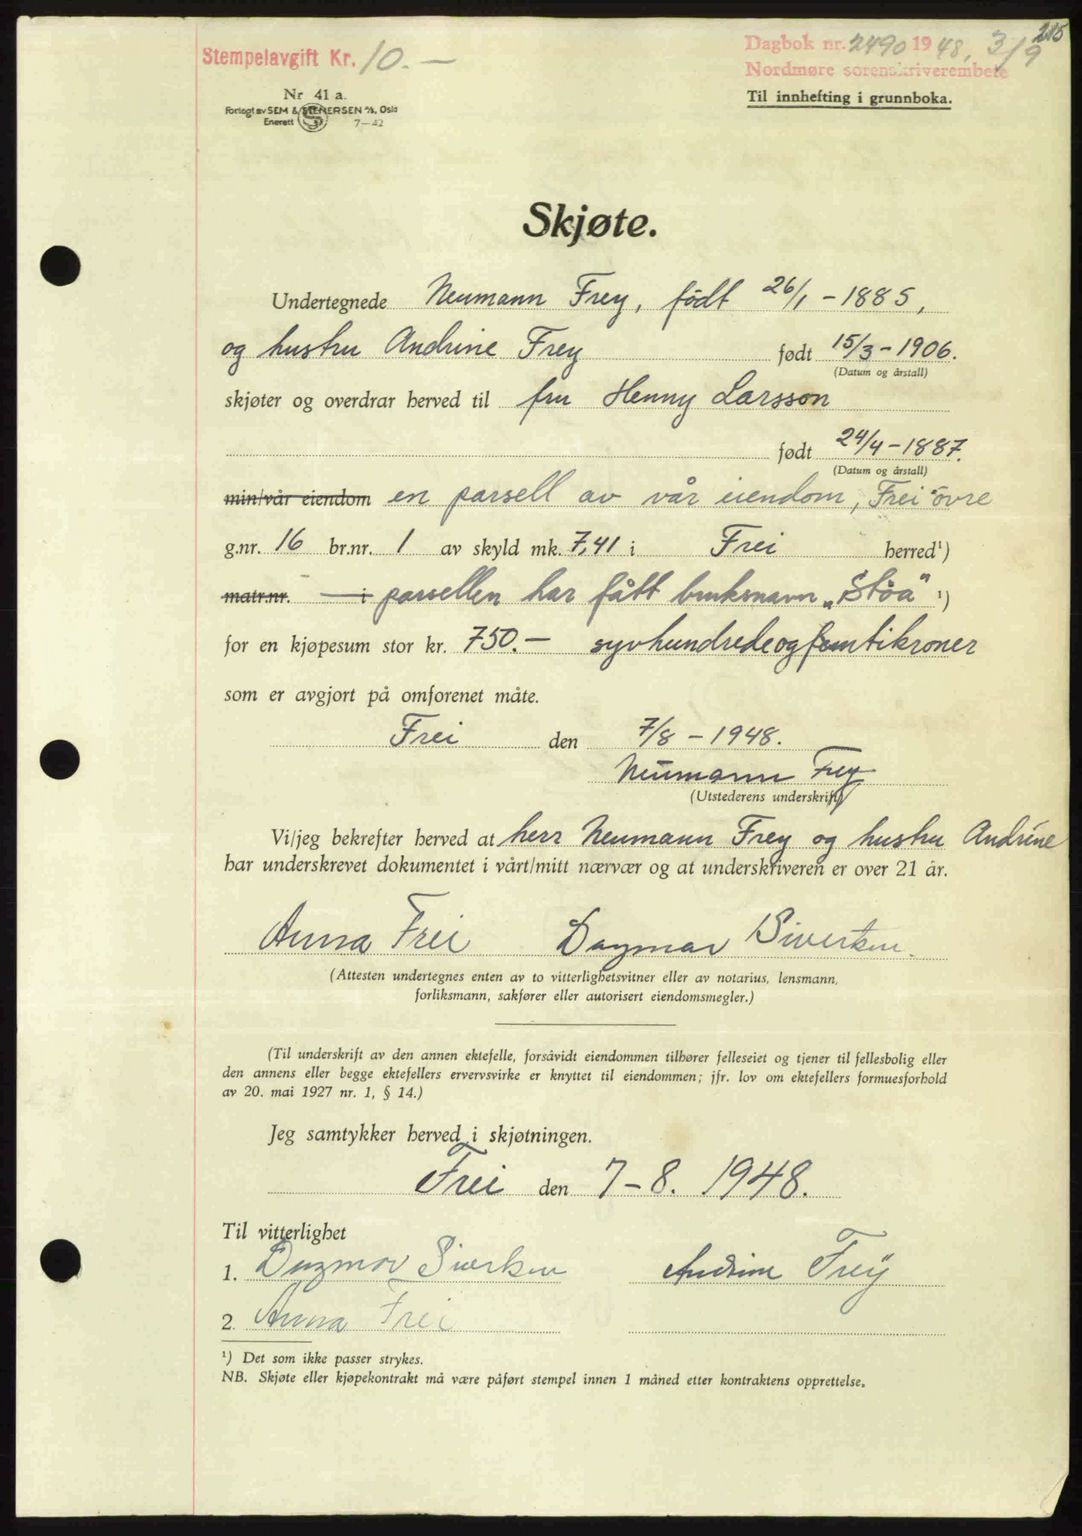 215
Stempelavgift Kr. 10.—
Dagbok nr. 2490 1948, 3/9
Nordmøre sorenskriverembete
Nr. 41 a.
Til innhefting i grunnboka.
Forlagt av SEM & STENERSEN A/S, Oslo
Enerett 7—42
Skjøte.
Undertegnede Neumann Frey, født 26/1 - 1885,
og hustru Andrine Frey født 15/3 - 1906.
(Datum og årstall)
skjøter og overdrar herved til fru Henny Larsson
født 24/4 - 1887.
(Datum og årstall)
min/vår eiendom en parsell av vår eiendom, Frei øvre
g.nr. 16 br.nr. 1 av skyld mk. 7,41 i Frei herred¹)
matr.nr. — i parsellen har fått bruksnavn „Støa" ¹)
for en kjøpesum stor kr. 750.— syvhundredeogfemtikroner
som er avgjort på omforenet måte.
Frei den 7/8 - 1948.
Neumann Frey
(Utstederens underskrift)
Vi/jeg bekrefter herved at herr Neumann Frey og hustru Andrine
har underskrevet dokumentet i vårt/mitt nærvær og at underskriveren er over 21 år.
Anna Frei Dagmar Sivertsen.
(Attesten undertegnes enten av to vitterlighetsvitner eller av notarius, lensmann,
forliksmann, sakfører eller autorisert eiendomsmegler.)
(Til underskrift av den annen ektefelle, forsåvidt eiendommen tilhører felleseiet og tjener til fellesbolig eller
den annens eller begge ektefellers ervervsvirke er knyttet til eiendommen; jfr. lov om ektefellers formuesforhold
av 20. mai 1927 nr. 1, § 14.)
Jeg samtykker herved i skjøtningen.
Frei den 7-8. 1948.
Til vitterlighet
1. Dagmar Sivertsen Andrine Frey
2. Anna Frei
¹) Det som ikke passer strykes.
NB. Skjøte eller kjøpekontrakt må være påført stempel innen 1 måned etter kontraktens opprettelse.